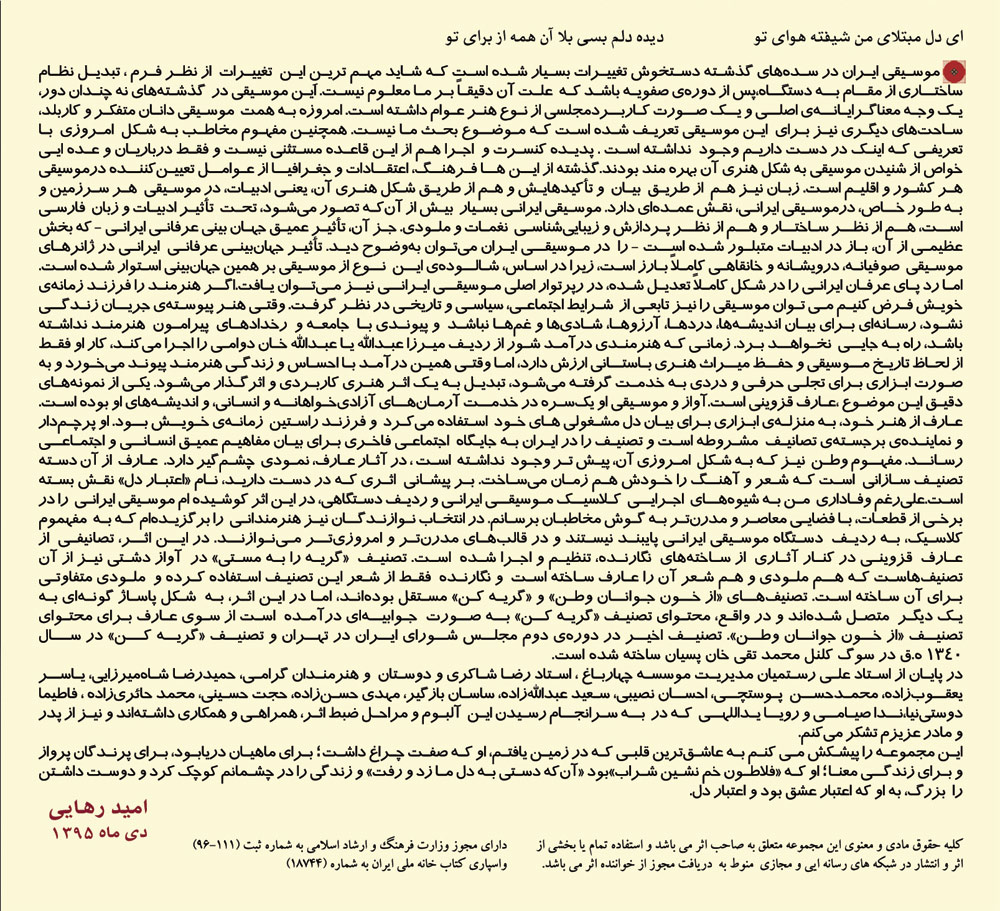 ای دل مبتلای من شیفته هوای تو دیده دلم بسی بلا آن همه از برای تو
موسیقی ایران در سده‌های گذشته دستخوش تغییرات بسیار شده است که شاید مهم ترین این تغییرات از نظر فرم ، تبدیل نظام
ساختاری از مقام به دستگاه،پس از دوره‌ی صفویه باشد که علت آن دقیقاً بر ما معلوم نیست.این موسیقی در گذشته‌های نه چندان دور،
یک وجه معناگرایانه‌ی اصلی و یک صورت کاربردمجلسی از نوع هنر عوام داشته است. امروزه به همت موسیقی دانان متفکر و کاربلد،
ساحت‌های دیگری نیز برای این موسیقی تعریف شده است که موضوع بحث ما نیست. همچنین مفهوم مخاطب به شکل امروزی با
تعریفی که اینک در دست داریم وجود نداشته است . پدیده کنسرت و اجرا هم از این قاعده مستثنی نیست و فقط درباریان و عده ایی
خواص از شنیدن موسیقی به شکل هنری آن بهره مند بودند.گذشته از این ها فرهنگ، اعتقادات و جغرافیا از عوامل تعیین‌کننده درموسیقی
هر کشور و اقلیم است. زبان نیز هم از طریق بیان و تأکیدهایش و هم از طریق شکل هنری آن، یعنی ادبیات، در موسیقی هر سرزمین و
به طور خاص، درموسیقی ایرانی، نقش عمده‌ای دارد. موسیقی ایرانی بسیار بیش از آن‌که تصور می‌شود، تحت تأثیر ادبیات و زبان فارسی
است، هم از نظر ساختار و هم از نظر پردازش و زیبایی‌شناسی نغمات و ملودی. جز آن، تأثیر عمیق جهان بینی عرفانی ایرانی - که بخش
عظیمی از آن، باز در ادبیات متبلور شده است - را در موسیقی ایران می‌توان به‌وضوح دید. تأثیر جهان‌بینی عرفانی ایرانی در ژانرهای
موسیقی صوفیانه، درویشانه و خانقاهی کاملاً بارز است، زیرا در اساس، شالوده‌ی این نوع از موسیقی بر همین جهان‌بینی استوار شده است.
اما رد پای عرفان ایرانی را در شکل کاملاً تعدیل شده، در رپرتوار اصلی موسیقی ایرانی نیز می‌توان یافت.اگر هنرمند را فرزند زمانه‌ی
خویش فرض کنیم می توان موسیقی را نیز تابعی از شرایط اجتماعی، سیاسی و تاریخی در نظر گرفت. وقتی هنر پیوسته‌ی جریان زندگی
نشود، رسانه‌ای برای بیان اندیشه‌ها، دردها، آرزوها، شادی‌ها و غم‌ها نباشد و پیوندی با جامعه و رخدادهای پیرامون هنرمند نداشته
باشد، راه به جایی نخواهد برد. زمانی که هنرمندی درآمد شور از ردیف میرزا عبدالله یا عبدالله خان دوامی را اجرا می‌کند، کار او فقط
از لحاظ تاریخ موسیقی و حفظ میراث هنری باستانی ارزش دارد، اما وقتی همین درآمد با احساس و زندگی هنرمند پیوند می‌خورد و به
صورت ابزاری برای تجلی حرفی و دردی به خدمت گرفته می‌شود، تبدیل به یک اثر هنری کاربردی و اثرگذار می‌شود. یکی از نمونه‌های
دقیق این موضوع ،عارف قزوینی است.آواز و موسیقی او یک‌سره در خدمت آرمان‌های آزادی‌خواهانه و انسانی، و اندیشه‌های او بوده است.
عارف از هنر خود، به منزله‌ی ابزاری برای بیان دل مشغولی های خود استفاده می‌کرد و فرزند راستین زمانه‌ی خویش بود. او پرچم‌دار
و نماینده‌ی برجسته‌ی تصانیف مشروطه است و تصنیف را در ایران به جایگاه اجتماعی فاخری برای بیان مفاهیم عمیق انسانی و اجتماعی
رساند. مفهوم وطن نیز که به شکل امروزی آن، پیش تر وجود نداشته است ، در آثار عارف، نمودی چشم‌گیر دارد. عارف از آن دسته
تصنیف سازانی است که شعر و آهنگ را خودش هم زمان می‌ساخت. بر پیشانی اثری که در دست دارید، نام «اعتبار دل» نقش بسته
است.علی‌رغم وفاداری من به شیوه‌های اجرایی کلاسیک موسیقی ایرانی و ردیف دستگاهی، در این اثر کوشیده ام موسیقی ایرانی را در
برخی از قطعات، با فضایی معاصر و مدرن‌تر به گوش مخاطبان برسانم. در انتخاب نوازندگان نیز هنرمندانی را برگزیده‌ام که به مفهموم
کلاسیک، به ردیف دستگاه موسیقی ایرانی پایبند نیستند و در قالب‌های مدرن‌تر و امروزی‌تر می‌نوازند. در این اثر، تصانیفی از
عارف قزوینی در کنار آثاری از ساخته‌های نگارنده، تنظیم و اجرا شده است. تصنیف «گریه را به مستی» در آواز دشتی نیز از آن
تصنیف‌هاست که هم ملودی و هم شعر آن را عارف ساخته است و نگارنده فقط از شعر این تصنیف استفاده کرده و ملودی متفاوتی
برای آن ساخته است. تصنیف‌های «از خون جوانان وطن» و «گریه کن» مستقل بوده‌اند، اما در این اثر، به شکل پاساژ گونه‌ای به
یک دیگر متصل شده‌اند و در واقع، محتوای تصنیف «گریه کن» به صورت جوابیه‌ای درآمده است از سوی عارف برای محتوای
تصنیف «از خون جوانان وطن». تصنیف اخیر در دوره‌ی دوم مجلس شورای ایران در تهران و تصنیف «گریه کن» در سال
۱۳٤۰ ه.ق در سوگ کلنل محمد تقی خان پسیان ساخته شده است.
در پایان از استاد علی رستمیان مدیریت موسسه چهارباغ ، استاد رضا شاکری و دوستان و هنرمندان گرامی، حمیدرضا شاه‌میرزایی، یاسر
یعقوب‌زاده، محمدحسن پوستچی، احسان نصیبی، سعید عبدالله‌زاده، ساسان بازگیر، مهدی حسن‌زاده، حجت حسینی، محمد حائری‌زاده ، فاطیما
دوستی‌نیا،ندا صیامی و رویا یداللهی که در به سرانجام رسیدن این آلبوم و مراحل ضبط اثر، همراهی و همکاری داشته‌اند و نیز از پدر
و مادر عزیزم تشکر می‌کنم.
این مجموعه را پیشکش می کنم به عاشق‌ترین قلبی که در زمین یافتم، او که صفت چراغ داشت؛ برای ماهیان دریابود، برای پرندگان پرواز
و برای زندگی معنا؛ او که «فلاطون خم نشین شراب»بود «آن‌که دستی به دل ما زد و رفت» و زندگی را در چشمانم کوچک کرد و دوست داشتن
را بزرگ، به او که اعتبار عشق بود و اعتبار دل.
امید رهایی
دی ماه ۱۳۹۵
کلیه حقوق مادی و معنوی این مجموعه متعلق به صاحب اثر می باشد و استفاده تمام یا بخشی از
اثر و انتشار در شبکه های رسانه ایی و مجازی منوط به دریافت مجوز از خواننده اثر می باشد.
دارای مجوز وزارت فرهنگ و ارشاد اسلامی به شماره ثبت (۱۱۱-۹۶)
واسپاری کتاب خانه ملی ایران به شماره (۱۸۷۴۴)